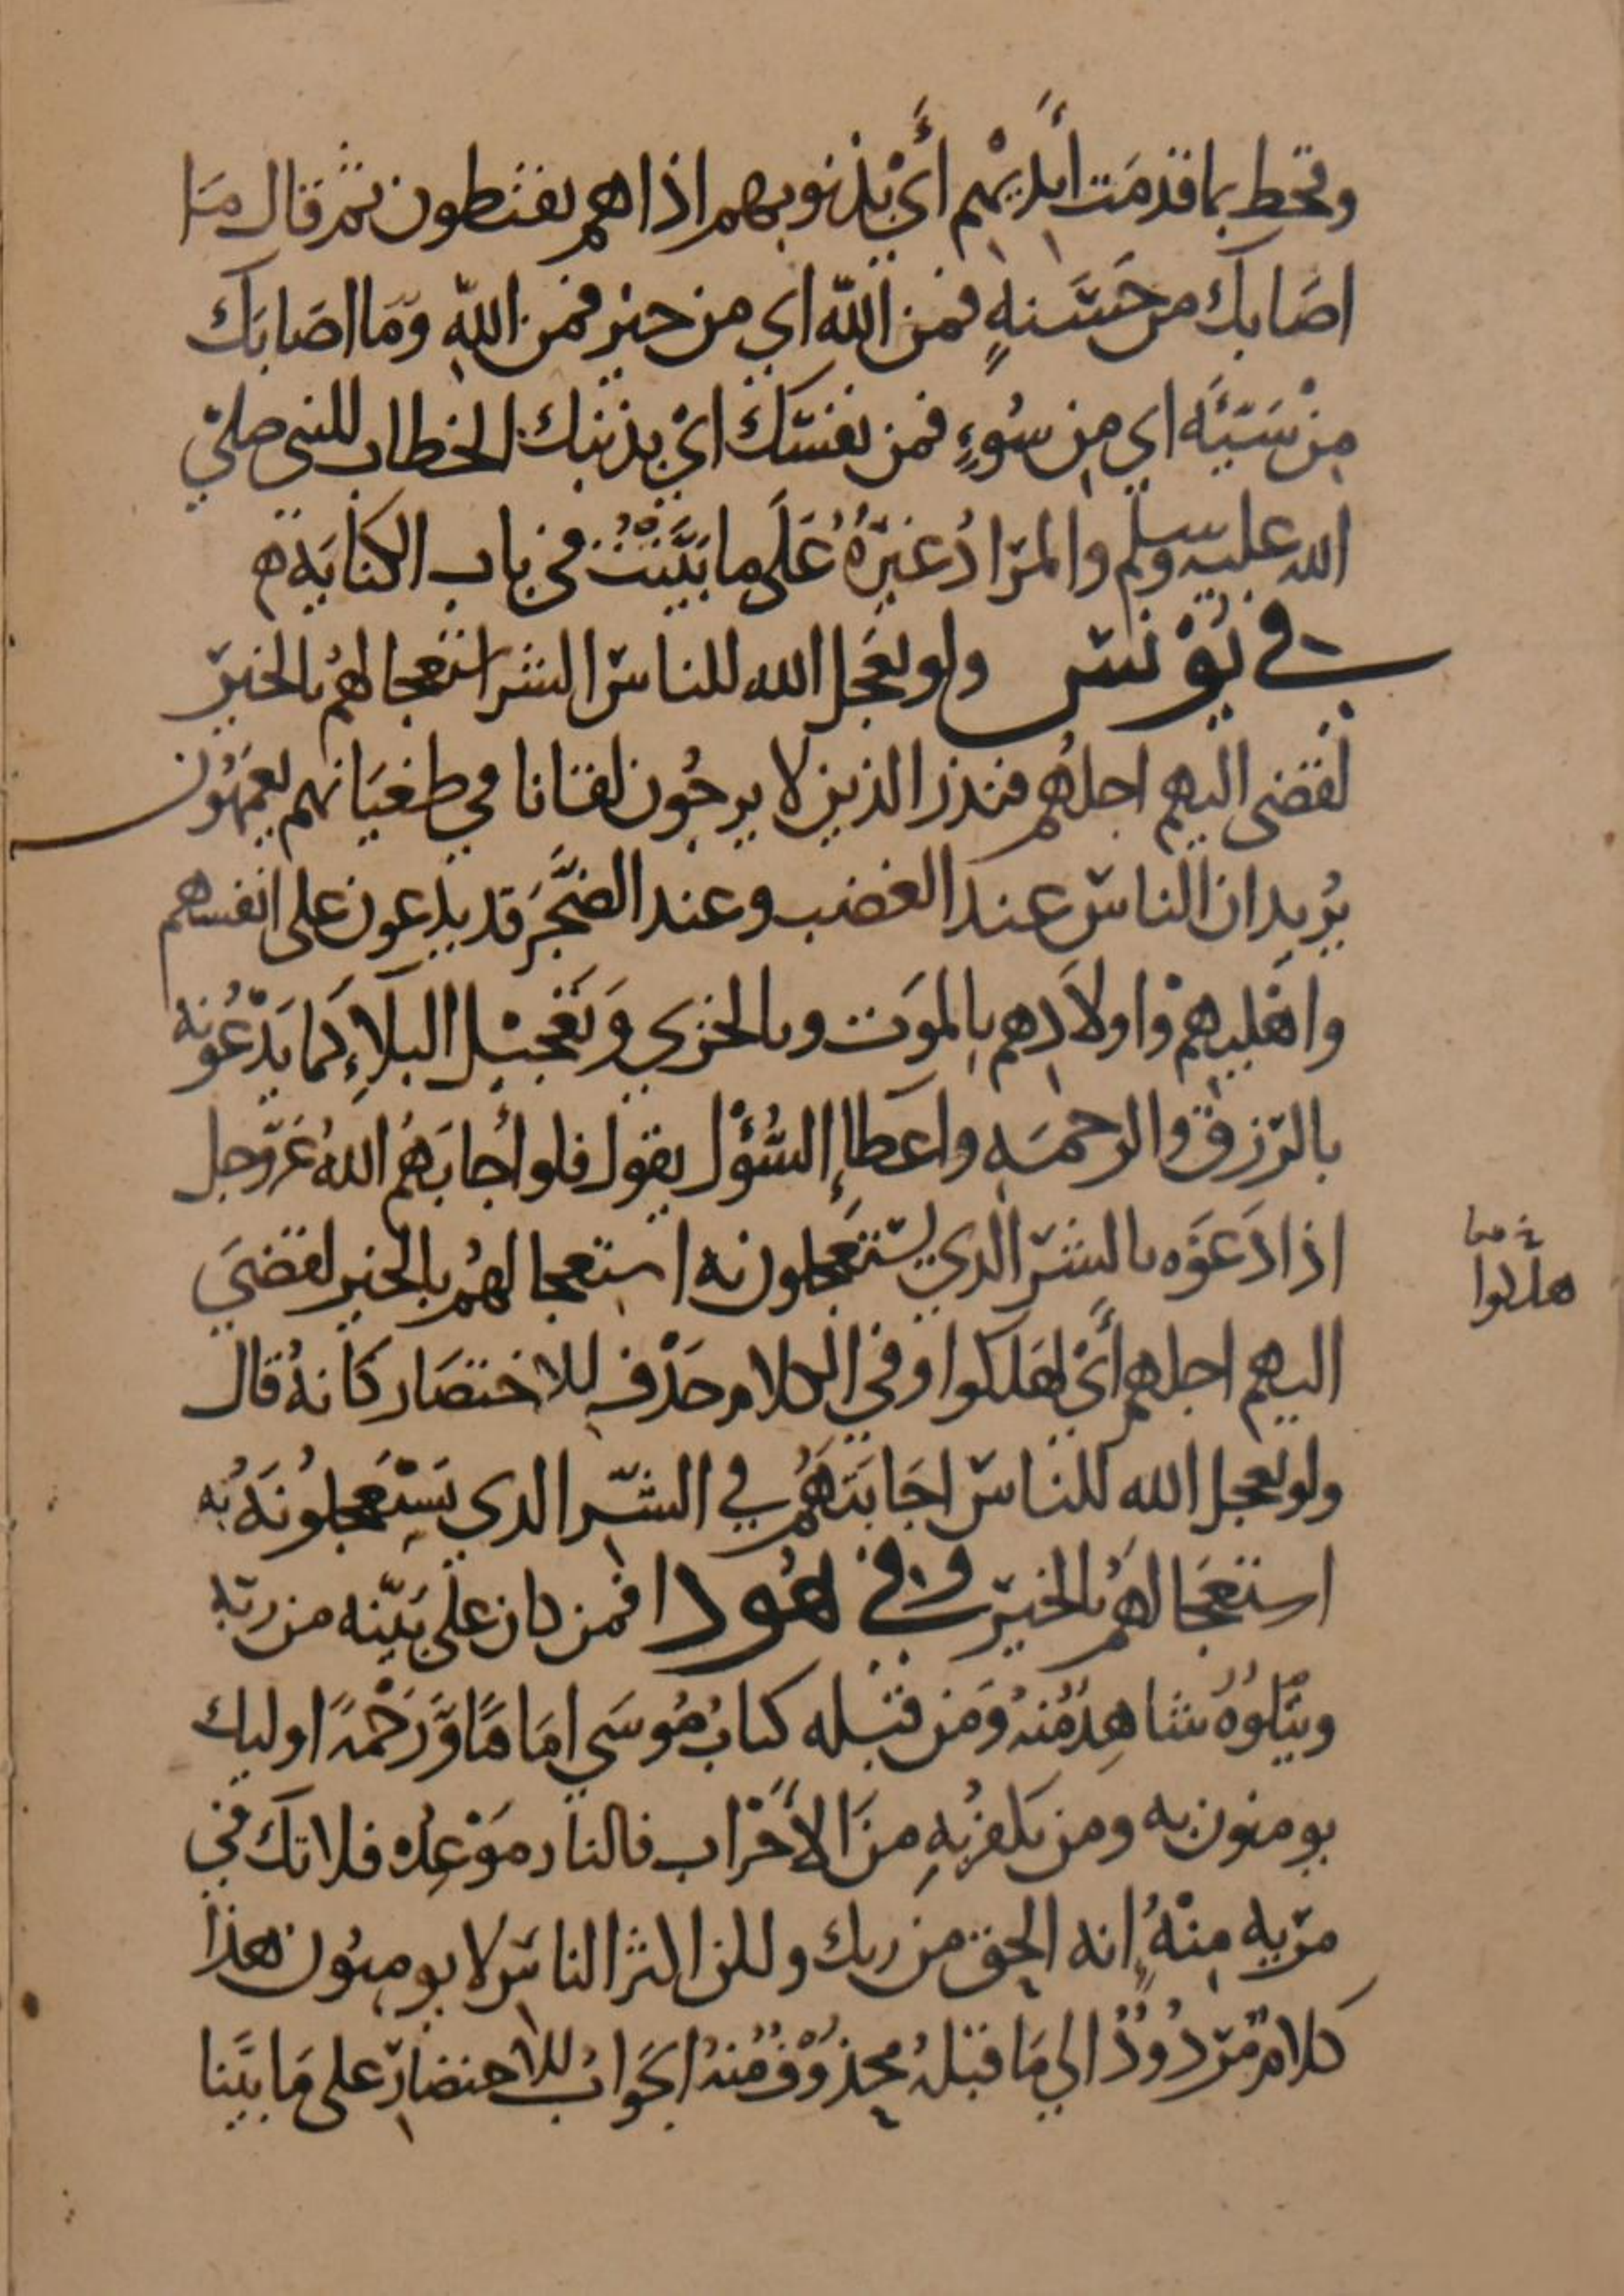 وقحط بما قدمَت أَيديهْم أَيْ بذنوبهم اذا هم يقنطون ثم قال مَا
اصَابك من حَسَنهٍ فمن اللّه اي من خير فمن اللّهِ وَمَا اصَابَك
مِنْ سَيّئَه اي مِن سُوءٍ فمن نفسك ايْ بذنبك الخطاب للنبي صلى
الله عليه وسلم والمرَادُ غيرُهُ عَلَى ما بَيَّنتُ في باب الكنايَه ه
في يُوْنس ولو يعَجل الله للناس الشر استعجالهُم بالخير
لقضي اليهم اجلهُم فنذر الذين لا يرجُون لقانا في طغيَانهم يعمَهُون
يُريد ان الناس عند الغضب وعند الضَّجَر قد يدعون على انفسهم
واهَليهمْ واولاَدِهم بِالموَت وبالخزي وَتَعْجيْل البلاِءِ كَما يَدْعُونه
بالرّزق والرحمَهِ واعطاءِ السُؤْل يقول فلو اجابَهُم اللهُ عَزّوجل
اذا دَعَوه بالشرّ الذي يستَعجلونه استعجالهُم بالخير لقضيَ
اليهم اجلهم أَيْ لهَلكوا وفي الكلام حَذْف للاختصَار كانهُ قال
ولو يعجل الله للناس اجَابَتهُم في الشّر الذي يَسْتِعَجلونَهُ به
استعَجالهُم بالخير وفي هُود افمن كان على بَيّنه من ربّه
ويتْلوُهُ شاهِدٌ مُنهُ وَمَن قبْله كتابُ مُوسَي امَامًا وَّرَحْمَةً اوليك
يومنون به ومن يكفر بِهِ منَ الأَحْزاب فالنار مَوْعِدُه فلا تك في
مرّيه مِنْهُ انه الحق من ربك ولكن اكثر الناس لا يومنون هذا
كلامٌ مّردُودٌ الي مَا قبْلهُ محذوْفٌ مّنهُ الجوَابُ للاختصَار على مَا بيَّنا
هلكوا